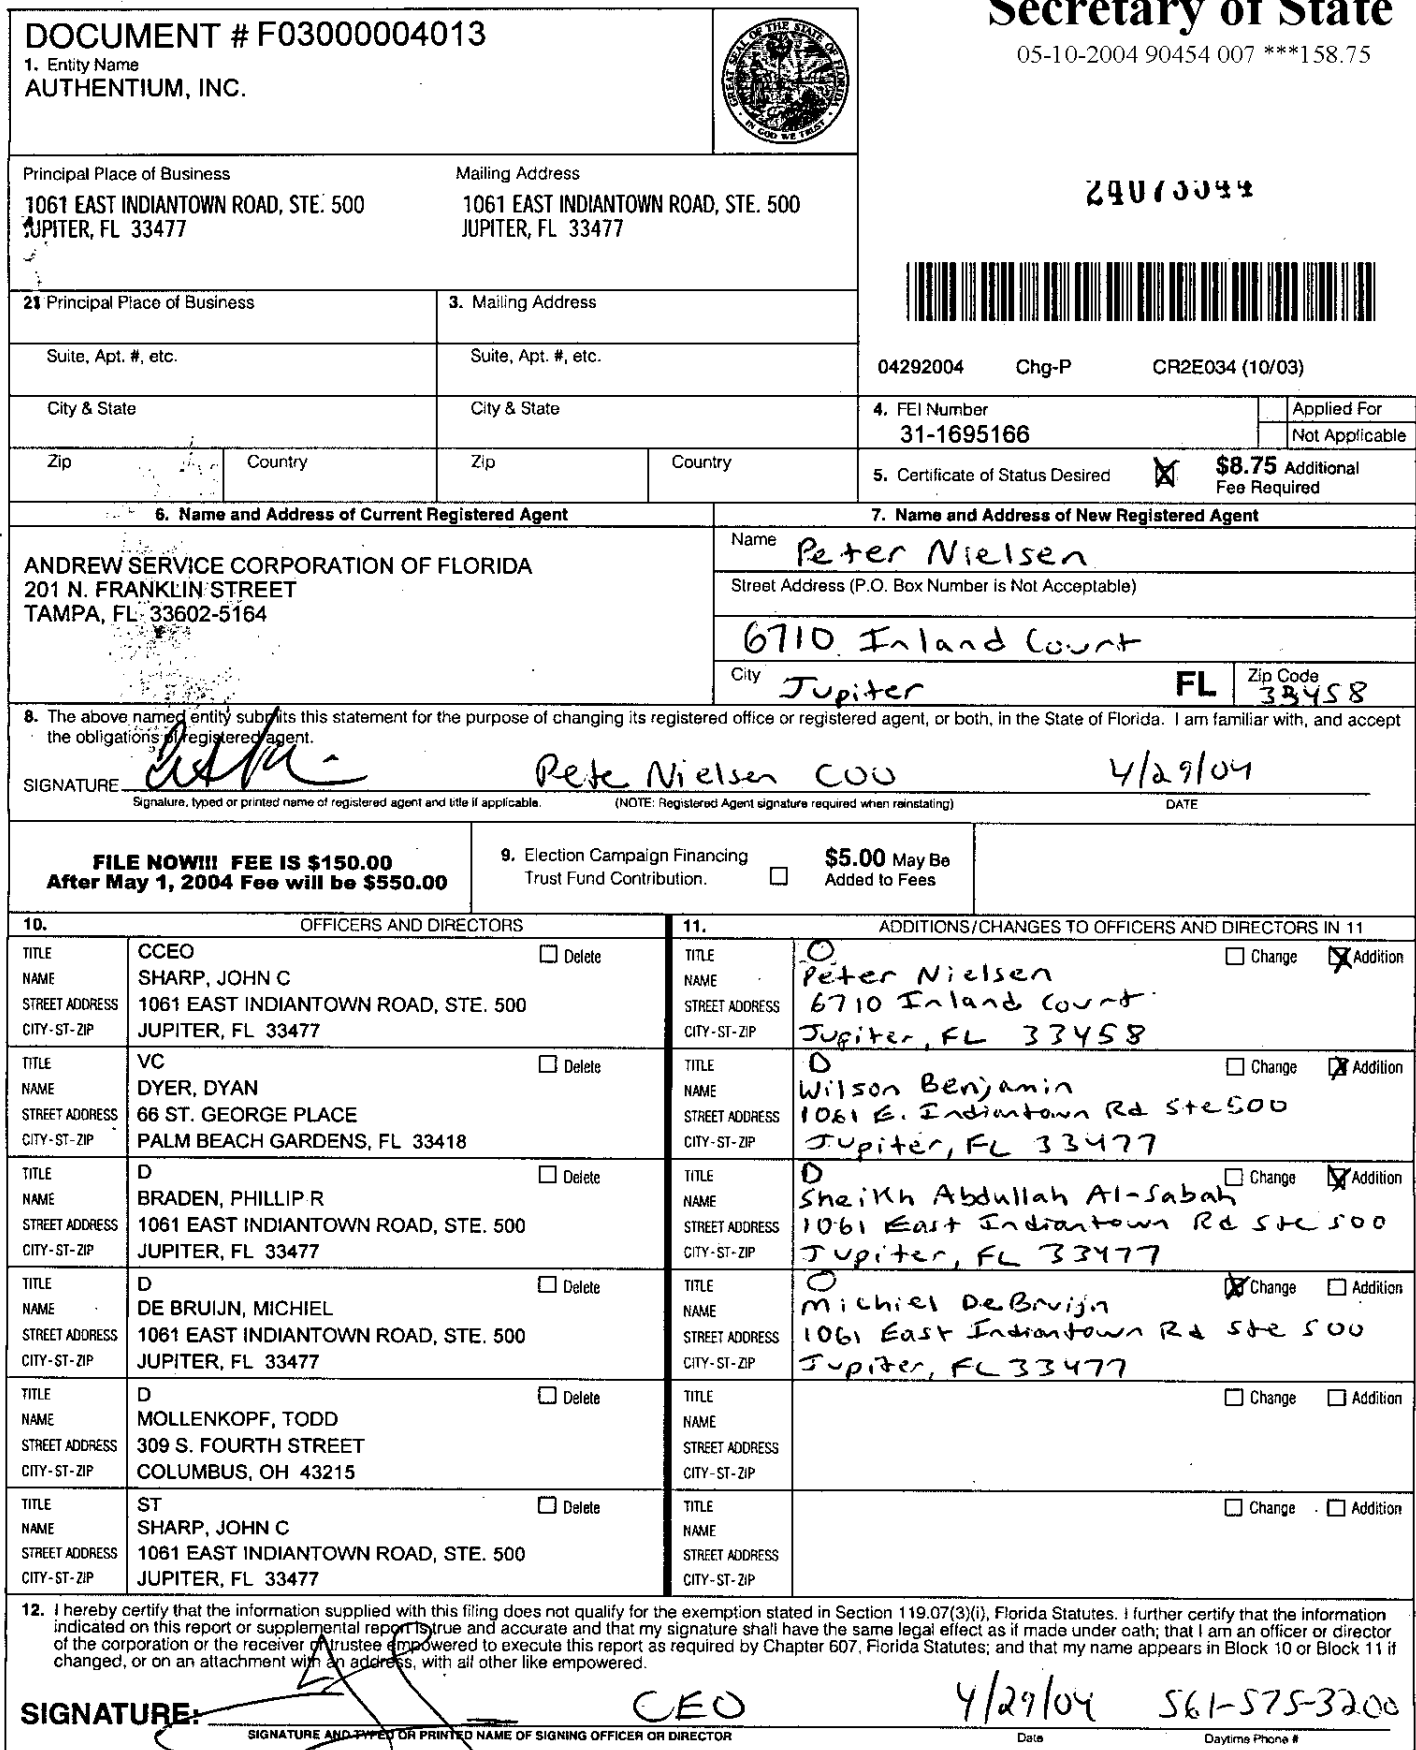 Secretary of State
05-10-2004 90454 007 ***158.75
DOCUMENT # F03000004013
1. Entity Name
AUTHENTIUM, INC.
GREAT SEAL OF THE STATE OF FLORIDA
IN GOD WE TRUST
Principal Place of Business
1061 EAST INDIANTOWN ROAD, STE. 500
JUPITER, FL 33477
Mailing Address
1061 EAST INDIANTOWN ROAD, STE. 500
JUPITER, FL 33477
21 Principal Place of Business
3. Mailing Address
Suite, Apt. #, etc.
Suite, Apt. #, etc.
04292004 Chg-P CR2E034 (10/03)
City & State
City & State
4. FEI Number
31-1695166
Applied For
Not Applicable
Zip
Country
Zip
Country
5. Certificate of Status Desired
$8.75 Additional
Fee Required
6. Name and Address of Current Registered Agent
ANDREW SERVICE CORPORATION OF FLORIDA
201 N. FRANKLIN STREET
TAMPA, FL 33602-5164
7. Name and Address of New Registered Agent
Name Peter Nielsen
Street Address (P.O. Box Number is Not Acceptable)
6710 Inland Court
City Jupiter FL Zip Code 33458
8. The above named entity submits this statement for the purpose of changing its registered office or registered agent, or both, in the State of Florida. I am familiar with, and accept
the obligations of registered agent.
SIGNATURE Pete Nielsen COO 4/29/04
Signature, typed or printed name of registered agent and title if applicable. (NOTE: Registered Agent signature required when reinstating) DATE
FILE NOW!!! FEE IS $150.00
After May 1, 2004 Fee will be $550.00
9. Election Campaign Financing
Trust Fund Contribution.
$5.00 May Be
Added to Fees
10. OFFICERS AND DIRECTORS
TITLE CCEO Delete
NAME SHARP, JOHN C
STREET ADDRESS 1061 EAST INDIANTOWN ROAD, STE. 500
CITY-ST-ZIP JUPITER, FL 33477
TITLE VC Delete
NAME DYER, DYAN
STREET ADDRESS 66 ST. GEORGE PLACE
CITY-ST-ZIP PALM BEACH GARDENS, FL 33418
TITLE D Delete
NAME BRADEN, PHILLIP R
STREET ADDRESS 1061 EAST INDIANTOWN ROAD, STE. 500
CITY-ST-ZIP JUPITER, FL 33477
TITLE D Delete
NAME DE BRUIJN, MICHIEL
STREET ADDRESS 1061 EAST INDIANTOWN ROAD, STE. 500
CITY-ST-ZIP JUPITER, FL 33477
TITLE D Delete
NAME MOLLENKOPF, TODD
STREET ADDRESS 309 S. FOURTH STREET
CITY-ST-ZIP COLUMBUS, OH 43215
TITLE ST Delete
NAME SHARP, JOHN C
STREET ADDRESS 1061 EAST INDIANTOWN ROAD, STE. 500
CITY-ST-ZIP JUPITER, FL 33477
11. ADDITIONS/CHANGES TO OFFICERS AND DIRECTORS IN 11
TITLE O Change Addition
NAME Peter Nielsen
STREET ADDRESS 6710 Inland Court
CITY-ST-ZIP Jupiter, FL 33458
TITLE D Change Addition
NAME Wilson Benjamin
STREET ADDRESS 1061 E. Indiantown Rd Ste 500
CITY-ST-ZIP Jupiter, FL 33477
TITLE D Change Addition
NAME Sheikh Abdullah Al-Sabah
STREET ADDRESS 1061 East Indiantown Rd Ste 500
CITY-ST-ZIP Jupiter, FL 33477
TITLE O Change Addition
NAME Michiel DeBruijn
STREET ADDRESS 1061 East Indiantown Rd Ste 500
CITY-ST-ZIP Jupiter, FL 33477
TITLE Change Addition
NAME
STREET ADDRESS
CITY-ST-ZIP
TITLE Change Addition
NAME
STREET ADDRESS
CITY-ST-ZIP
12. I hereby certify that the information supplied with this filing does not qualify for the exemption stated in Section 119.07(3)(i), Florida Statutes. I further certify that the information
indicated on this report or supplemental report is true and accurate and that my signature shall have the same legal effect as if made under oath; that I am an officer or director
of the corporation or the receiver or trustee empowered to execute this report as required by Chapter 607, Florida Statutes; and that my name appears in Block 10 or Block 11 if
changed, or on an attachment with an address, with all other like empowered.
SIGNATURE: CEO 4/29/04 561-575-3200
SIGNATURE AND TYPED OR PRINTED NAME OF SIGNING OFFICER OR DIRECTOR Date Daytime Phone #